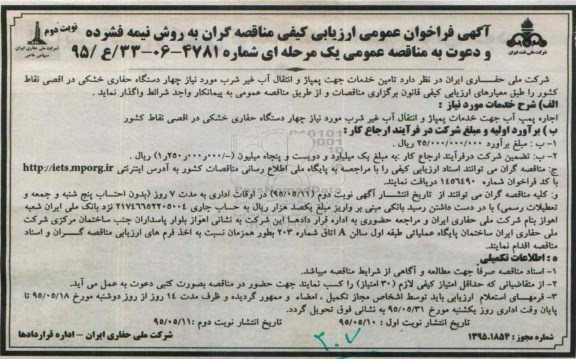 نوبت دوم
آگهی فراخوان عمومی ارزیابی کیفی مناقصه گران به روش نیمه فشرده
و دعوت به مناقصه عمومی یک مرحله ای شماره ۴۷۸۱-۰۶-۳۳/ع /۹۵
شرکت ملی نفت ایران
شرکت ملی حفاری ایران
شرکت ملی حفاری ایران در نظر دارد تامین خدمات جهت پمپاژ و انتقال آب غیر شرب مورد نیاز چهار دستگاه حفاری خشکی در اقصی نقاط
کشور را طبق معیارهای ارزیابی کیفی قانون برگزاری مناقصات و از طریق مناقصه عمومی به پیمانکار واجد شرائط واگذار نماید .
الف) شرح خدمات مورد نیاز :
اجاره پمپ آب جهت خدمات پمپاژ و انتقال آب غیر شرب مورد نیاز چهار دستگاه حفاری خشکی در اقصی نقاط کشور
ب ) برآورد اولیه و مبلغ شرکت در فرآیند ارجاع کار :
۱- ب : مبلغ برآورد ۲۵/۰۰۰/۰۰۰/۰۰۰ ریال .
۲- ب: تضمین شرکت درفرآیند ارجاع کار :به مبلغ یک میلیارد و دویست و پنجاه میلیون (-/۱٫۲۵۰٫۰۰۰٫۰۰۰) ریال .
ج: مناقصه گران می توانند اسناد ارزیابی کیفی را با مراجعه به پایگاه ملی اطلاع رسانی مناقصات کشور به آدرس اینترنتی http://iets.mporg.ir
با کد فراخوان شماره ۱۴۵۶۴۹۰ دریافت نمایند.
و: کلیه مناقصه گران می توانند از تاریخ انتشار آگهی نوبت دوم (۹۵/۰۵/۱۱) در اوقات اداری به مدت ۷ روز (بدون احتساب پنج شنبه و جمعه و
تعطیلات رسمی) با در دست داشتن رسید بانکی مبنی بر واریز مبلغ یکصد هزار ریال به حساب جاری ۲۱۷۴۶۶۵۲۲۰۵۰۰۴ نزد بانک ملی ایران شعبه
اهواز بنام شرکت ملی حفاری ایران و مراجعه حضوری به اداره قرار دادها این شرکت به نشانی اهواز بلوار پاسداران جنب ساختمان مرکزی شرکت
ملی حفاری ایران ساختمان پایگاه عملیاتی طبقه اول سالن A اتاق شماره ۲۰۳ بطور همزمان نسبت به اخذ فرم های ارزیابی مناقصه گران و اسناد
مناقصه اقدام نمایند.
ه : اطلاعات تکمیلی
۱- اسناد مناقصه صرفاً جهت مطالعه و آگاهی از شرایط مناقصه میباشد.
۲- از متقاضیانی که حداقل امتیاز کیفی لازم (۳۰ امتیاز) را کسب نمایند جهت حضور در مناقصه بصورت کتبی دعوت به عمل می آید.
۳- فرمهای استعلام ارزیابی باید توسط اشخاص مجاز تکمیل ، امضاء و ممهور گردیده و ظرف مدت ۱۴ روز از روز دوشنبه مورخ ۹۵/۰۵/۱۸ تا
پایان وقت اداری روز یکشنبه مورخ ۹۵/۰۵/۳۱ به نشانی فوق تحویل گردد.
تاریخ انتشار نوبت اول : ۹۵/۰۵/۱۰ تاریخ انتشار نوبت دوم :۹۵/۰۵/۱۱
شماره مجوز : ۱۳۹۵.۱۸۵۴
شرکت ملی حفاری ایران – اداره قراردادها
۲۰۷